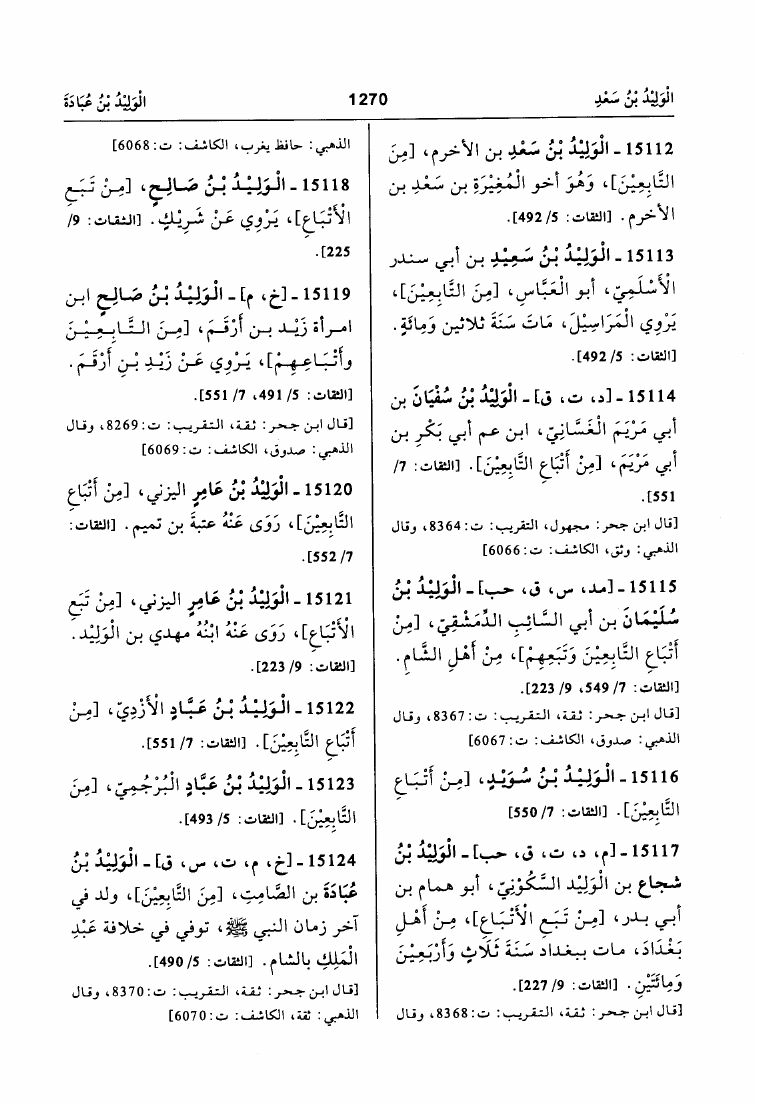 الْوَلِيْدُ بْنُ سَعْدٍ
1270
الْوَلِيْدُ بْنُ عُبَادَةَ
15112 - الْوَلِيْدُ بْنُ سَعْدٍ بن الأخرم، [مِنَ
التَّابِعِيْنَ]، وَهُوَ أخو الْمُغِيْرَةِ بن سَعْد بن
الأخرم. [الثقات: 5/ 492].
15113 - الْوَلِيْدُ بْنُ سَعِيْدِ بن أبي سندر
الأَسْلَمِيّ، أبو الْعَبَّاس، [مِنَ التَّابِعِيْنَ]،
يَرْوِي الْمَرَاسِيْلَ، مَاتَ سَنَةَ ثلاثين وَمِائَةٍ.
[الثقات: 5/ 492].
15114 - [د، ت، ق] - الْوَلِيْدُ بْنُ سُفْيَانَ بن
أبي مَرْيَمَ الْغَسَّانِيّ، ابن عم أبي بَكْرِ بن
أبي مَرْيَمَ، [مِنْ أَتْبَاعِ التَّابِعِيْنَ]. [الثقات: 7/
551].
[قال ابن حجر: مجهول، التقريب: ت: 8364، وقال
الذهبي: وثق، الكاشف: ت: 6066]
15115 - [مد، س، ق، حب] - الْوَلِيْدُ بْنُ
سُلَيْمَانَ بن أبي السَّائِبِ الدِّمَشْقِيّ، [مِنْ
أَتْبَاعِ التَّابِعِيْنَ وَتَبَعِهِمْ]، مِنْ أَهْلِ الشَّام.
[الثقات: 7/ 549، 9/ 223].
[قال ابن حجر: ثقة، التقريب: ت: 8367، وقال
الذهبي: صدوق، الكاشف: ت: 6067]
15116 - الْوَلِيْدُ بْنُ سُوَيْدٍ، [مِنْ أَتْبَاعِ
التَّابِعِيْنَ]. [الثقات: 7/ 550]
15117 - [م، د، ت، ق، حب] - الْوَلِيْدُ بْنُ
شجاع بن الْوَلِيْد السَّكُوْنِيّ، أبو همام بن
أبي بدر، [مِنْ تَبَعِ الأَتْبَاعِ]، مِنْ أَهْلِ
بَغْدَادَ، مات ببغداد سَنَةَ ثَلَاثٍ وَأَرْبَعِيْنَ
وَمِائَتَيْنِ. [الثقات: 9/ 227].
[قال ابن حجر: ثقة، التقريب: ت: 8368، وقال
الذهبي: حافظ يغرب، الكاشف: ت: 6068]
15118 - الْوَلِيْدُ بْنُ صَالِحٍ، [مِنْ تَبَعِ
الأَتْبَاعِ]، يَرْوِي عَنْ شَرِيْكٍ. [الثقات: 9/
225].
15119 - [خ، م] - الْوَلِيْدُ بْنُ صَالِحٍ ابن
امرأة زَيْد بن أَرْقَمَ، [مِنَ التَّابِعِيْنَ
وأَتْبَاعِهِمْ]، يَرْوِي عَنْ زَيْدِ بْنِ أَرْقَمَ.
[الثقات: 5/ 491، 7/ 551].
[قال ابن حجر: ثقة، التقريب: ت: 8269، وقال
الذهبي: صدوق، الكاشف: ت: 6069]
15120 - الْوَلِيْدُ بْنُ عَامِرٍ اليزني، [مِنْ أَتْبَاعِ
التَّابِعِيْنَ]، رَوَى عَنْهُ عتبةَ بن تميم. [الثقات:
7/ 552].
15121 - الْوَلِيْدُ بْنُ عَامِرٍ اليزني، [مِنْ تَبَعِ
الأَتْبَاعِ]، رَوَى عَنْهُ ابْنُهُ مهدي بن الْوَلِيْد.
[الثقات: 9/ 223].
15122 - الْوَلِيْدُ بْنُ عَبَّادٍ الأَزْدِيّ، [مِنْ
أَتْبَاعِ التَّابِعِيْنَ]. [الثقات: 7/ 551].
15123 - الْوَلِيْدُ بْنُ عَبَّادٍ الْبُرْجُمِيّ، [مِنَ
التَّابِعِيْنَ]. [الثقات: 5/ 493].
15124 - [خ، م، ت، س، ق] - الْوَلِيْدُ بْنُ
عُبَادَةَ بن الصَّامِتِ، [مِنَ التَّابِعِيْنَ]، ولد في
آخر زمان النبي ﷺ، توفي في خلافة عَبْدِ
الْمَلِكِ بالشام. [الثقات: 5/ 490].
[قال ابن حجر: ثقة، التقريب: ت: 8370، وقال
الذهبي: ثقة، الكاشف: ت: 6070]